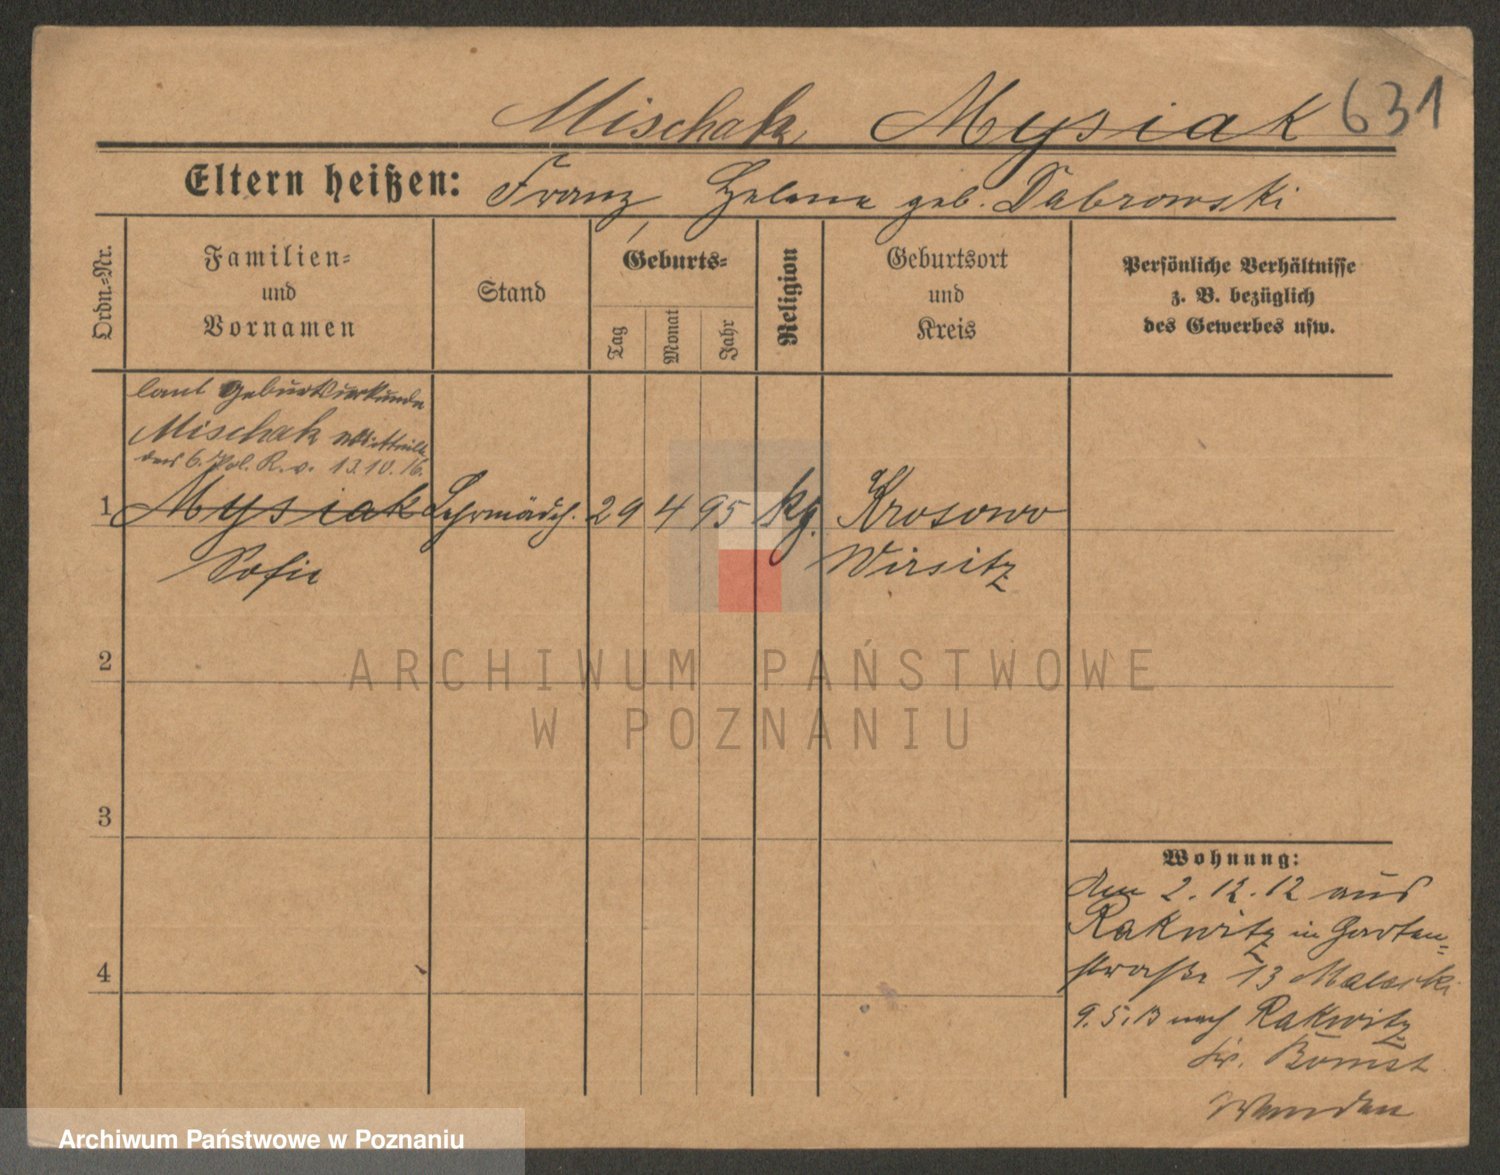 Mischak Mysiak 631
Eltern heißen: Franz Helene geb. Dabrowski
Ordn.-Nr.
Familien-
und
Vornamen
Stand
Geburts-
Tag
Monat
Jahr
Religion
Geburtsort
und
Kreis
Persönliche Verhältnisse
z. B. bezüglich
des Gewerbes usw.
laut Geburtsurkunde
Mischak
des 6. Pol. R. v. 13.10.16.
1 Mysiak Lehrmädch. 29 4 95 kg. Krosowo
Sofie Wirsitz
2
3
4
Wohnung:
den 2.12.12 aus
Rakwitz in Garten-
straße 13 Malecki
9.5.13 nach Rakwitz
Kr. Bomst
ARCHIWUM PAŃSTWOWE
W POZNANIU
Archiwum Państwowe w Poznaniu